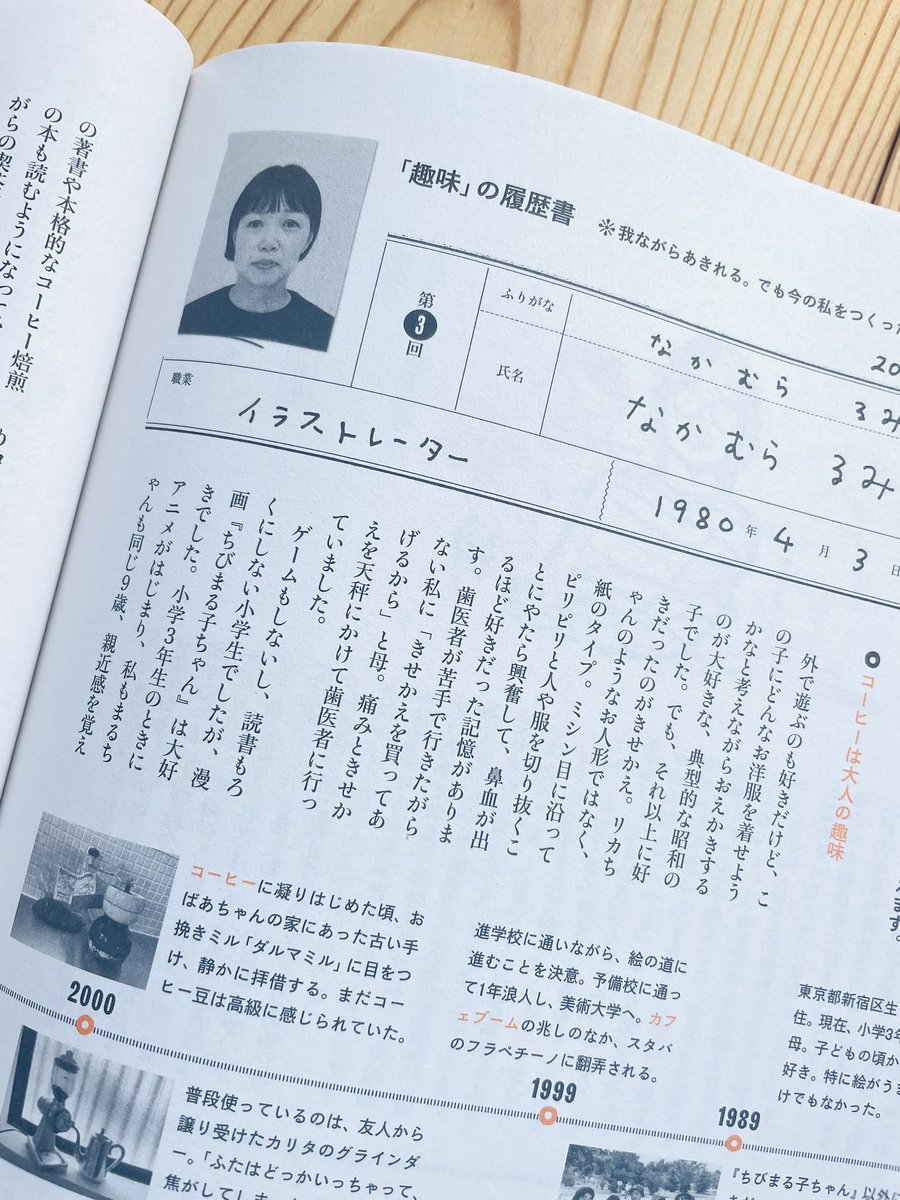 「趣味」の履歴書
※我ながらあきれる。でも今の私をつくった
第
3
回
ふりがな
なかむら るみ
20
氏名
なかむら るみ
職業
イラストレーター
1980年4月3日
コーヒーは大人の趣味
外で遊ぶのも好きだけど、こ
の子にどんなお洋服を着せよう
かなと考えながらおえかきする
のが大好きな、典型的な昭和の
子でした。でも、それ以上に好
きだったのがきせかえ。リカち
ゃんのようなお人形ではなく、
紙のタイプ。ミシン目に沿って
ピリピリと人や服を切り抜くこ
とにやたら興奮して、鼻血が出
るほど好きだった記憶がありま
す。歯医者が苦手で行きたがら
ない私に「きせかえを買ってあ
げるから」と母。痛みときせか
えを天秤にかけて歯医者に行っ
ていました。
ゲームもしないし、読書もろ
くにしない小学生でしたが、漫
画『ちびまる子ちゃん』は大好
きでした。小学3年生のときに
アニメがはじまり、私もまるち
ゃんも同じ9歳、親近感を覚え
の著書や本格的なコーヒー焙煎
の本も読むようになって、
がらの喫茶
ます。
東京都新宿区生
住。現在、小学3年
母。子どもの頃か
好き。特に絵がうま
けでもなかった。
1989
進学校に通いながら、絵の道に
進むことを決意。予備校に通っ
て1年浪人し、美術大学へ。カフ
ェブームの兆しのなか、スタバ
のフラペチーノに翻弄される。
1999
コーヒーに凝りはじめた頃、お
ばあちゃんの家にあった古い手
挽きミル「ダルマミル」に目をつ
け、静かに拝借する。まだコー
ヒー豆は高級に感じられていた。
2000
普段使っているのは、友人から
譲り受けたカリタのグラインダ
ー。「ふたはどっかいっちゃって、
焦がしてしま
『ちびまる子ちゃん』以外に